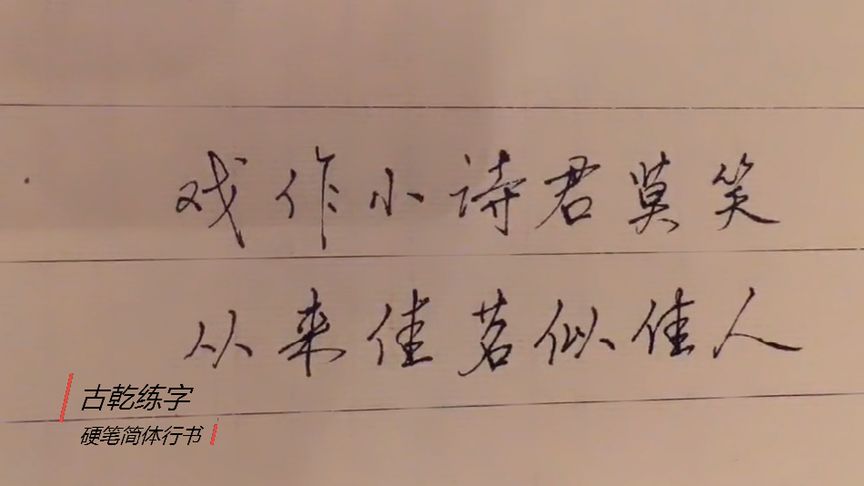 戏作小诗君莫笑
从来佳茗似佳人
古乾练字
硬笔简体行书